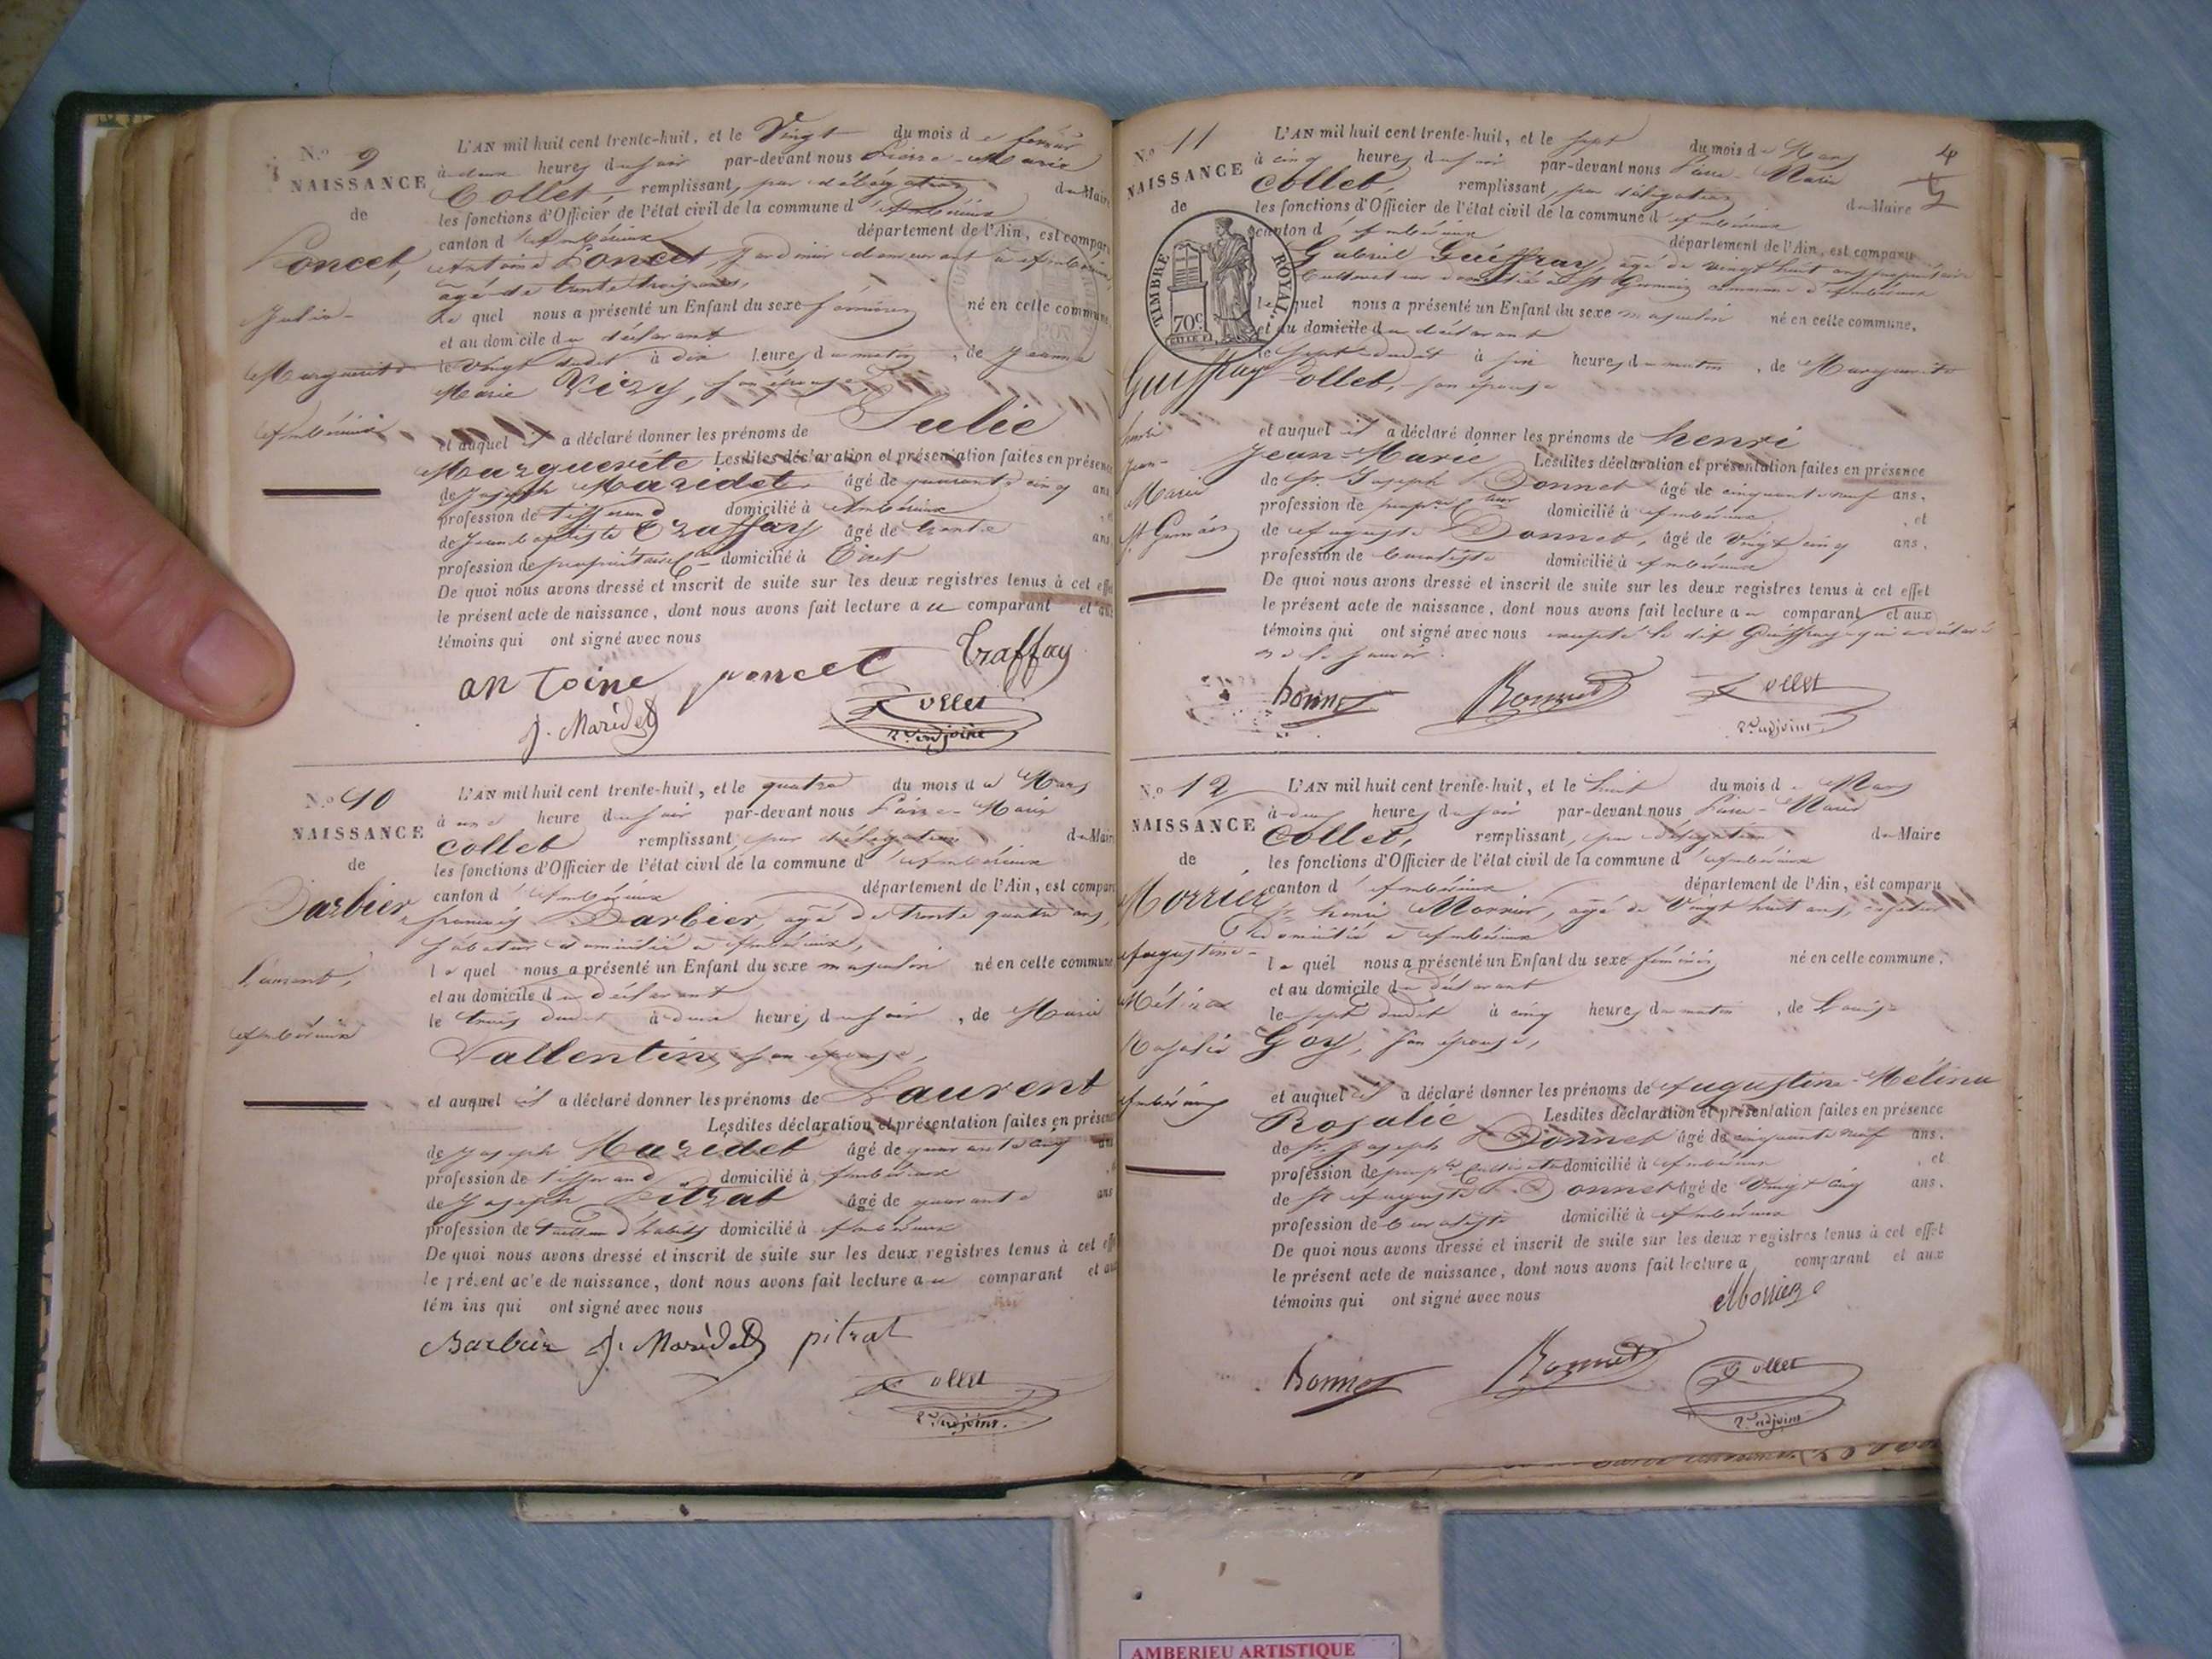 N.º 9
NAISSANCE
de
Poncet,
Julie-
Marguerite
Ambérieux
L'AN mil huit cent trente-huit, et le Vingt du mois de février
à deux heures du soir par-devant nous Pierre-Marie
Collet, remplissant, par délégation du Maire
les fonctions d'Officier de l'état civil de la commune d'Ambérieux
canton d'Ambérieux département de l'Ain, est comparu
Antoine Poncet, Jardinier demeurant à Ambérieux,
âgé de trente trois ans,
Le quel nous a présenté un Enfant du sexe féminin né en cette commune,
et au domicile du déclarant
le Vingt dudit à dix heures du matin, de Jeanne
Marie Vizy, son épouse
et auquel il a déclaré donner les prénoms de Julie
Marguerite Lesdites déclaration et présentation faites en présence
de Joseph Maridet, âgé de quarante cinq ans
profession de tisserand domicilié à Ambérieux
de Jean baptiste Traffay âgé de trente ans
profession de propriétaire domicilié à Tiret
De quoi nous avons dressé et inscrit de suite sur les deux registres tenus à cet effet
le présent acte de naissance, dont nous avons fait lecture au comparant et aux
témoins qui ont signé avec nous
antoine poncet Traffay
J. Maridet Collet
2e adjoint
N.º 10
NAISSANCE
de
Barbier
Laurent,
Ambérieux
L'AN mil huit cent trente-huit, et le quatre du mois de Mars
à une heure du soir par-devant nous Pierre-Marie
Collet remplissant, par délégation du Maire
les fonctions d'Officier de l'état civil de la commune d'Ambérieux
canton d'Ambérieux département de l'Ain, est comparu
françois Barbier, âgé de trente quatre ans,
Sabotier domicilié à Ambérieux,
le quel nous a présenté un Enfant du sexe masculin né en cette commune
et au domicile du déclarant
le trois dudit à deux heures du soir, de Marie
Vallentin, son épouse,
et auquel il a déclaré donner les prénoms de Laurent
Lesdites déclaration et présentation faites en présence
de Joseph Maridet âgé de quarante cinq ans
profession de tisserand domicilié à Ambérieux
de Joseph Pitrat âgé de quarante ans
profession de tailleur d'habits domicilié à Ambérieux
De quoi nous avons dressé et inscrit de suite sur les deux registres tenus à cet effet
le présent acte de naissance, dont nous avons fait lecture au comparant et aux
témoins qui ont signé avec nous
Barbier J. Maridet pitrat
Collet
2e adjoint.
N.º 11
NAISSANCE
de
TIMBRE ROYAL.
70c
Guiffray
henri
Jean-
Marie
St Germain
4
L'AN mil huit cent trente-huit, et le sept du mois de Mars
à cinq heures du soir par-devant nous Pierre-Marie
Collet, remplissant, par délégation du Maire
les fonctions d'Officier de l'état civil de la commune d'Ambérieux
canton d'Ambérieux département de l'Ain, est comparu
Gabriel Guiffray, âgé de vingt huit ans propriétaire
Cultivateur domicilié à St Germain commune d'Ambérieux
le quel nous a présenté un Enfant du sexe masculin né en cette commune,
et au domicile du déclarant
le sept dudit à six heures du matin, de Marguerite
Collet, son épouse
et auquel il a déclaré donner les prénoms de henri
Jean-Marie Lesdites déclaration et présentation faites en présence
de Sr. Joseph Bonnet âgé de cinquante neuf ans,
profession de domicilié à Ambérieux, et
de Auguste Bonnet, âgé de Vingt cinq ans,
profession de domicilié à Ambérieux
De quoi nous avons dressé et inscrit de suite sur les deux registres tenus à cet effet
le présent acte de naissance, dont nous avons fait lecture au comparant et aux
témoins qui ont signé avec nous excepté le dit Guiffray qui a déclaré
ne le savoir.
bonnet Bonnet Collet
2e adjoint
N.º 12
NAISSANCE
de
Morrier
Augustine-
Mélina
Rosalie
Ambérieux
L'AN mil huit cent trente-huit, et le huit du mois de Mars
à deux heures du soir par-devant nous Pierre-Marie
Collet, remplissant, par délégation du Maire
les fonctions d'Officier de l'état civil de la commune d'Ambérieux
canton d'Ambérieux département de l'Ain, est comparu
Sr. henri Morrier, âgé de Vingt huit ans, cafetier
domicilié à Ambérieux
le quel nous a présenté un Enfant du sexe féminin né en cette commune,
et au domicile du déclarant
le sept dudit à cinq heures du matin, de Louise
Goy, son épouse,
et auquel il a déclaré donner les prénoms de Augustine-Mélina
Rosalie Lesdites déclaration et présentation faites en présence
de Sr. Joseph Bonnet âgé de cinquante neuf ans,
profession de domicilié à Ambérieux, et
de Sr Auguste Bonnet âgé de Vingt cinq ans,
profession de domicilié à Ambérieux
De quoi nous avons dressé et inscrit de suite sur les deux registres tenus à cet effet
le présent acte de naissance, dont nous avons fait lecture a comparant et aux
témoins qui ont signé avec nous Morrier
bonnet Bonnet Collet
2e adjoint
AMBERIEU ARTISTIQUE